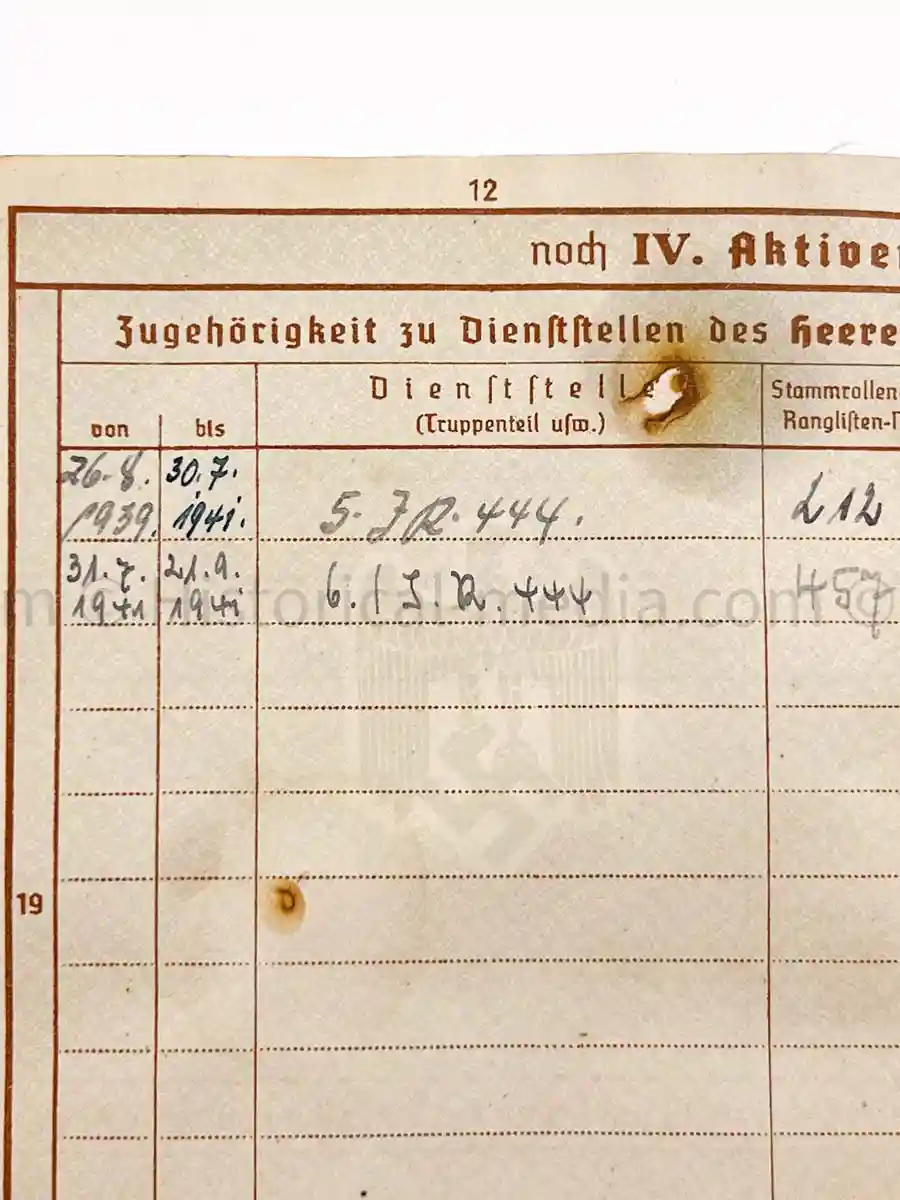 12
noch IV. Aktive
Zugehörigkeit zu Dienststellen des Heere
Dienststelle
von bis (Truppenteil usw.) Stammrollen-
Ranglisten-
26.8. 30.7.
1939. 1941. 5. J.R. 444. 212
31.7. 21.9.
1941 1941 6. / J.R. 444 457
historicalmedia.com ©
19